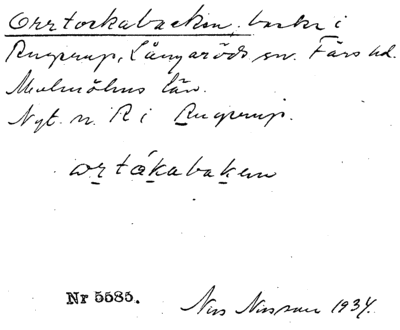 Orrtockabacken, backe i
Rugerup, Långaröds sn. Färs hd.
Malmöhus län.
Nyt. n. R i Rugerup.
ortákabaken
Nr 5585.
Nils Nilsson 1934.